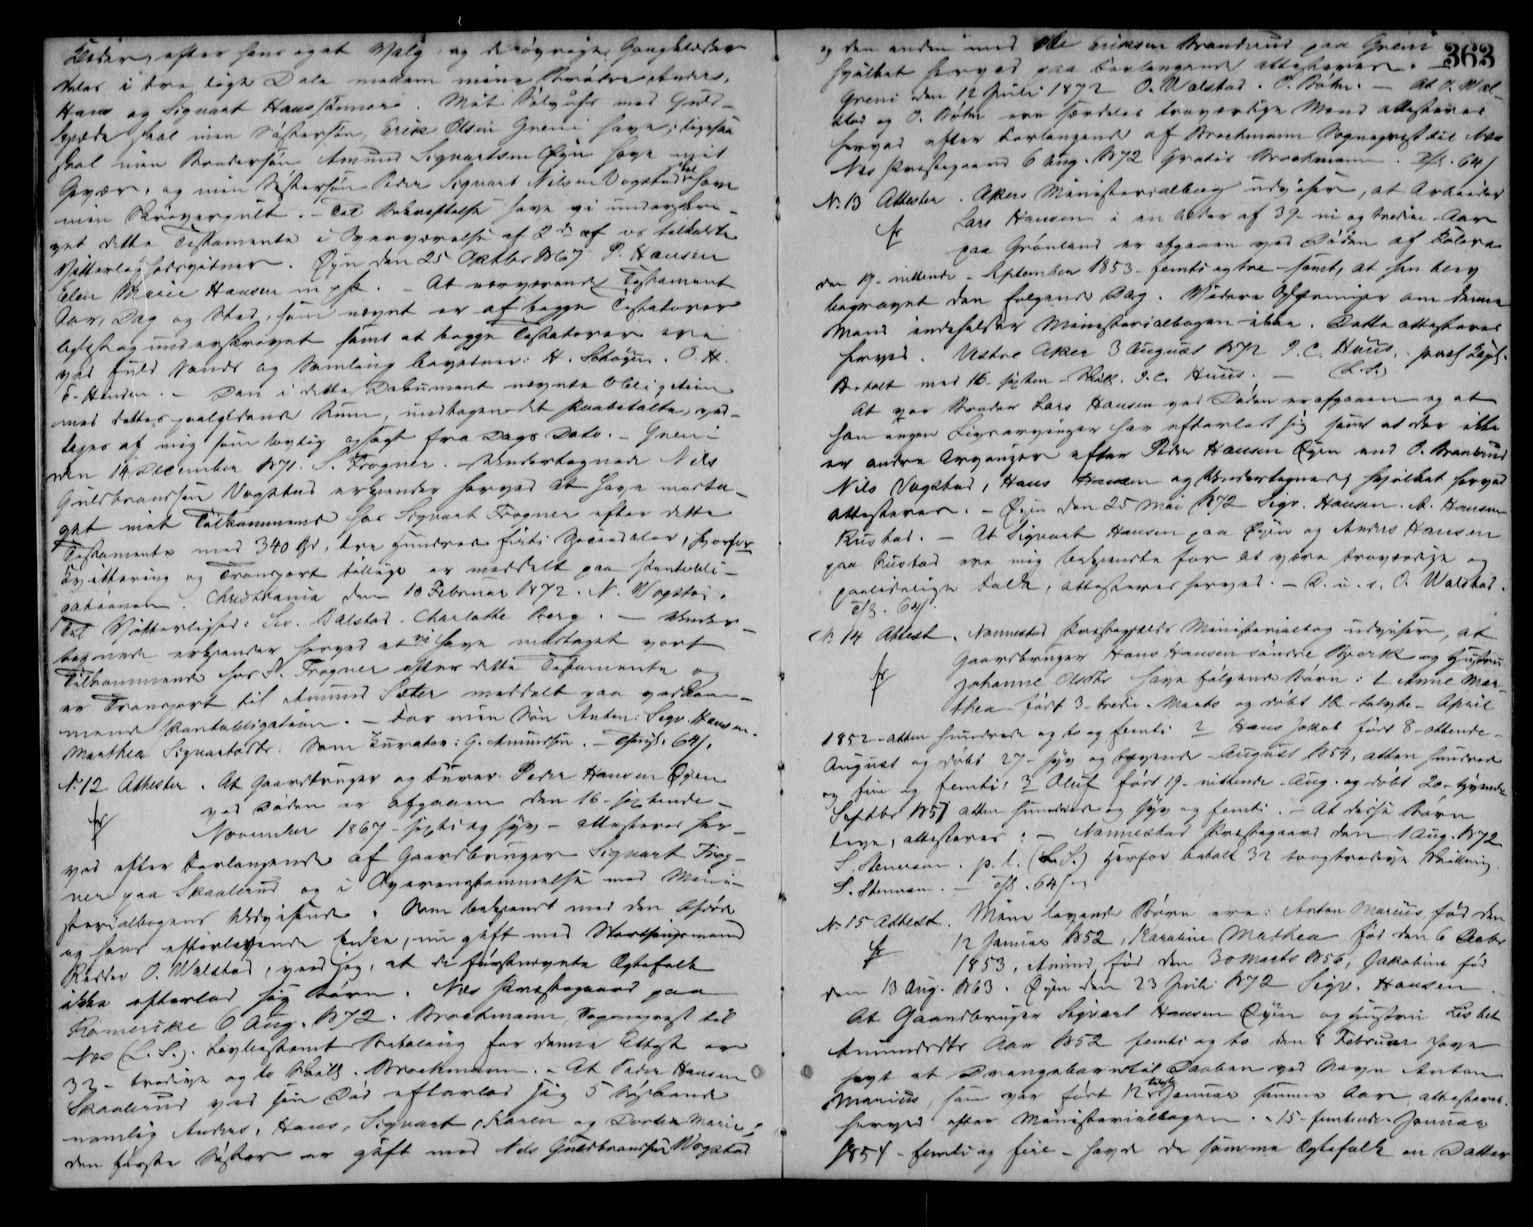 Klæder, efter hans eget Valg og de øvrige Gangklæder
deles i tre lige Dele mellem mine Brødre Anders,
Hans og Sigvart Hanssønner. Mit Sølvuhr med Guld-
kjæde skal min Søstersøn, Erik Olsen Greni have, ligesaa
skal min Brodersøn Amund Sigvartsen Øyn have mit
Gevær, og min Søstersøn Peder Sigvart Nilsen Vogstad skal have
min Skrøverpult. – Til Bekræftelse have vi underskre-
vet dette Testamente i Overværelse af 2de af os tilkaldte
Vitterlighedsvidner. Øyn den 25 Oktbr 1867 P. Hansen
Elen Marie Hansen m. p. P. – At nærværende Testament
Aar, Dag og Sted, som nævnt er af begge Testatorer
oplæst og underskrevet samt at begge Testatorer ere
ved fuld Sands og Samling bevidner: H. Schøyen. O. H.
E. Henden. – Den i dette Dokument nævnte Obligation
med dettes paalydende Sum, undtagen det paabetalte, ved-
tages af mig som lovlig opsagt fra Dags Dato. – Greni
den 14 December 1871. S. Frogner. – Undertegnede Nils
Guldbrandsen Vogstad erkjender herved at have modta-
get mit Tilkommende hos Sigvart Frogner efter dette
Testamente med 340 Spd, tre hundrede firti Speciedaler, hvorfor
Qvittering og Transport tillige er meddelt paa Pantobli-
gationen. Christiania den 10 Februar 1872. N. Vogstad.
Til Vitterlighed: Sev. Dalstad. Charlotte Berg. – Under-
tegnede erkjender herved at vi have modtaget vort
Tilkommende hos S. Frogner efter dette Testamente og
er Transport til Amund Sæter meddelt paa vedkom-
mende Pantobligation. – For min Søn Anton: Sigv. Hansen.
Marthea Sigvartsdtr. Som Kurator: G. Amundsen. – 64/.
No 12 Attester. At Gaardbruger og Eier Peder Hansen Øyen
ved Døden er afgaaen den 16 – sextende –
November 1867 – sexti og syv – attesteres her-
ved efter Forlangende af Gaardbruger Sigvart Frog-
ner paa Skaalerud og i Overensstemmelse med Mini-
sterialbogens Udvisende. Som bekjendt med den Afdøde
og hans efterlevende Enke, nu gift med Storthingsmand
Ridder O. Walstad, veed jeg, at de førstnævnte Ægtefolk
ikke efterlod sig Børn. Næs Præstegaard paa
Romerike 6 Aug. 1872. Brochmann, Sogneprest til
Næs (L. S.). Lovbestemt Betaling for denne Attest er
32 – tredive og to Skill. Brochmann. – At Peder Hansen
Skaalerud ved sin Død efterlod sig 5 Sødskende
nemlig Anders, Hans, Sigvart, Karen og Dorthe Marie,
den første Søster er gift med Nils Guldbrandsen Wogstad
363
og den anden med Ole Eriksen Brandrud paa Greni
hvilket herved paa Forlangende attesteres.
Greni den 12 Juli 1872 O. Walstad. O. Bøhn. – At O. Wal-
stad og O. Bøhn ere særdeles troværdige Mænd attesteres
herved efter Forlangende af Brochmann Sogneprest til Næs
Næs Præstegaard 6 Aug. 1872. Gratis Brochmann. 64/
No 13 Attester. Akers Ministerialbog udviser, at Arbeider
Lars Hansen i en Alder af 39 ni og tredive Aar
paa Grønland er afgaaen ved Døden af Kolera
den 19 – nittende – September 1853 – femti og tre – samt, at han blev
begravet den følgende Dag. Videre Oplysninger om denne
Mand indeholder Ministerialbogen ikke. Dette attesteres
herved. Vestre Aker 3 August 1872 I. C. Huus, pers. Kapl.
Betalt med 16 – sexten – Skill. I. C. Huus. – (L. S.)
At vor Broder Lars Hansen ved Døden er afgaaen og at
han ingen Livsarvinger har efterladt sig samt at der ikke
er andre Arvinger efter Peder Hansen Øyen end O. Brandrud
Nils Vogstad, Hans Hansen og Undertegnede, hvilket herved
attesteres. – Øyn den 25 Mai 1872 Sigv. Hansen. A. Hansen
Rustad. – At Sigvart Hansen paa Øyen og Anders Hansen
paa Rustad ere mig bekjendte for at være troværdige og
paalidelige Folk, attesteres herved. – D. u. s. O. Walstad.
64/.
No 14 Attest. Nannestad Præstegjelds Ministerialbog udviser, at
Gaardbruger Hans Hansen søndre Bjerk og Hustru
Johanne Olsdtr have følgende Børn: 1 Anne Mar-
thea født 3 – tredie – Marts og døbt 12 – tolvte – April
1852 – atten hundrede og to og femti 2 Hans Jakob født 8 – ottende –
August og døbt 27 – syv og tyvende August 1854, atten hundrede
og fire og femti, 3 Oluf født 19 – nittende – Aug. og døbt 20 – tyvende
Septbr 1857 atten hundrede og syv og femti. – At disse Børn
leve, attesteres. – Nannestad Præstegaard den 1 Aug. 1872
S. Stenersen. p. l. (L. S.) Herfor betalt 32 to og tredive Skilling.
S. Stenersen. – 64/. –
No 15 Attest. Mine levende Børn ere: Anton Marius, fød den
12 Januar 1852, Karoline Mathea fød den 6 Oktbr
1853, Amund fød den 30 Marts 1856, Jakobine fød
den 13 Aug. 1863. Øyn den 23 Juli 1872 Sigv. Hansen.
At Gaardbruger Sigvart Hansen Øyen og Hustru Lisbet
Amundsdtr Aar 1852 femti og to den 8 Februar have
havt et Drengebarn til Daaben ved Navn Anton
Marius, som var født 12 tolvte Januar samme Aar, attesteres
herved efter Ministerialbogen. – 15 – femtende Januar
1854 – femti og fire – havde de samme Ægtefolk en Datter